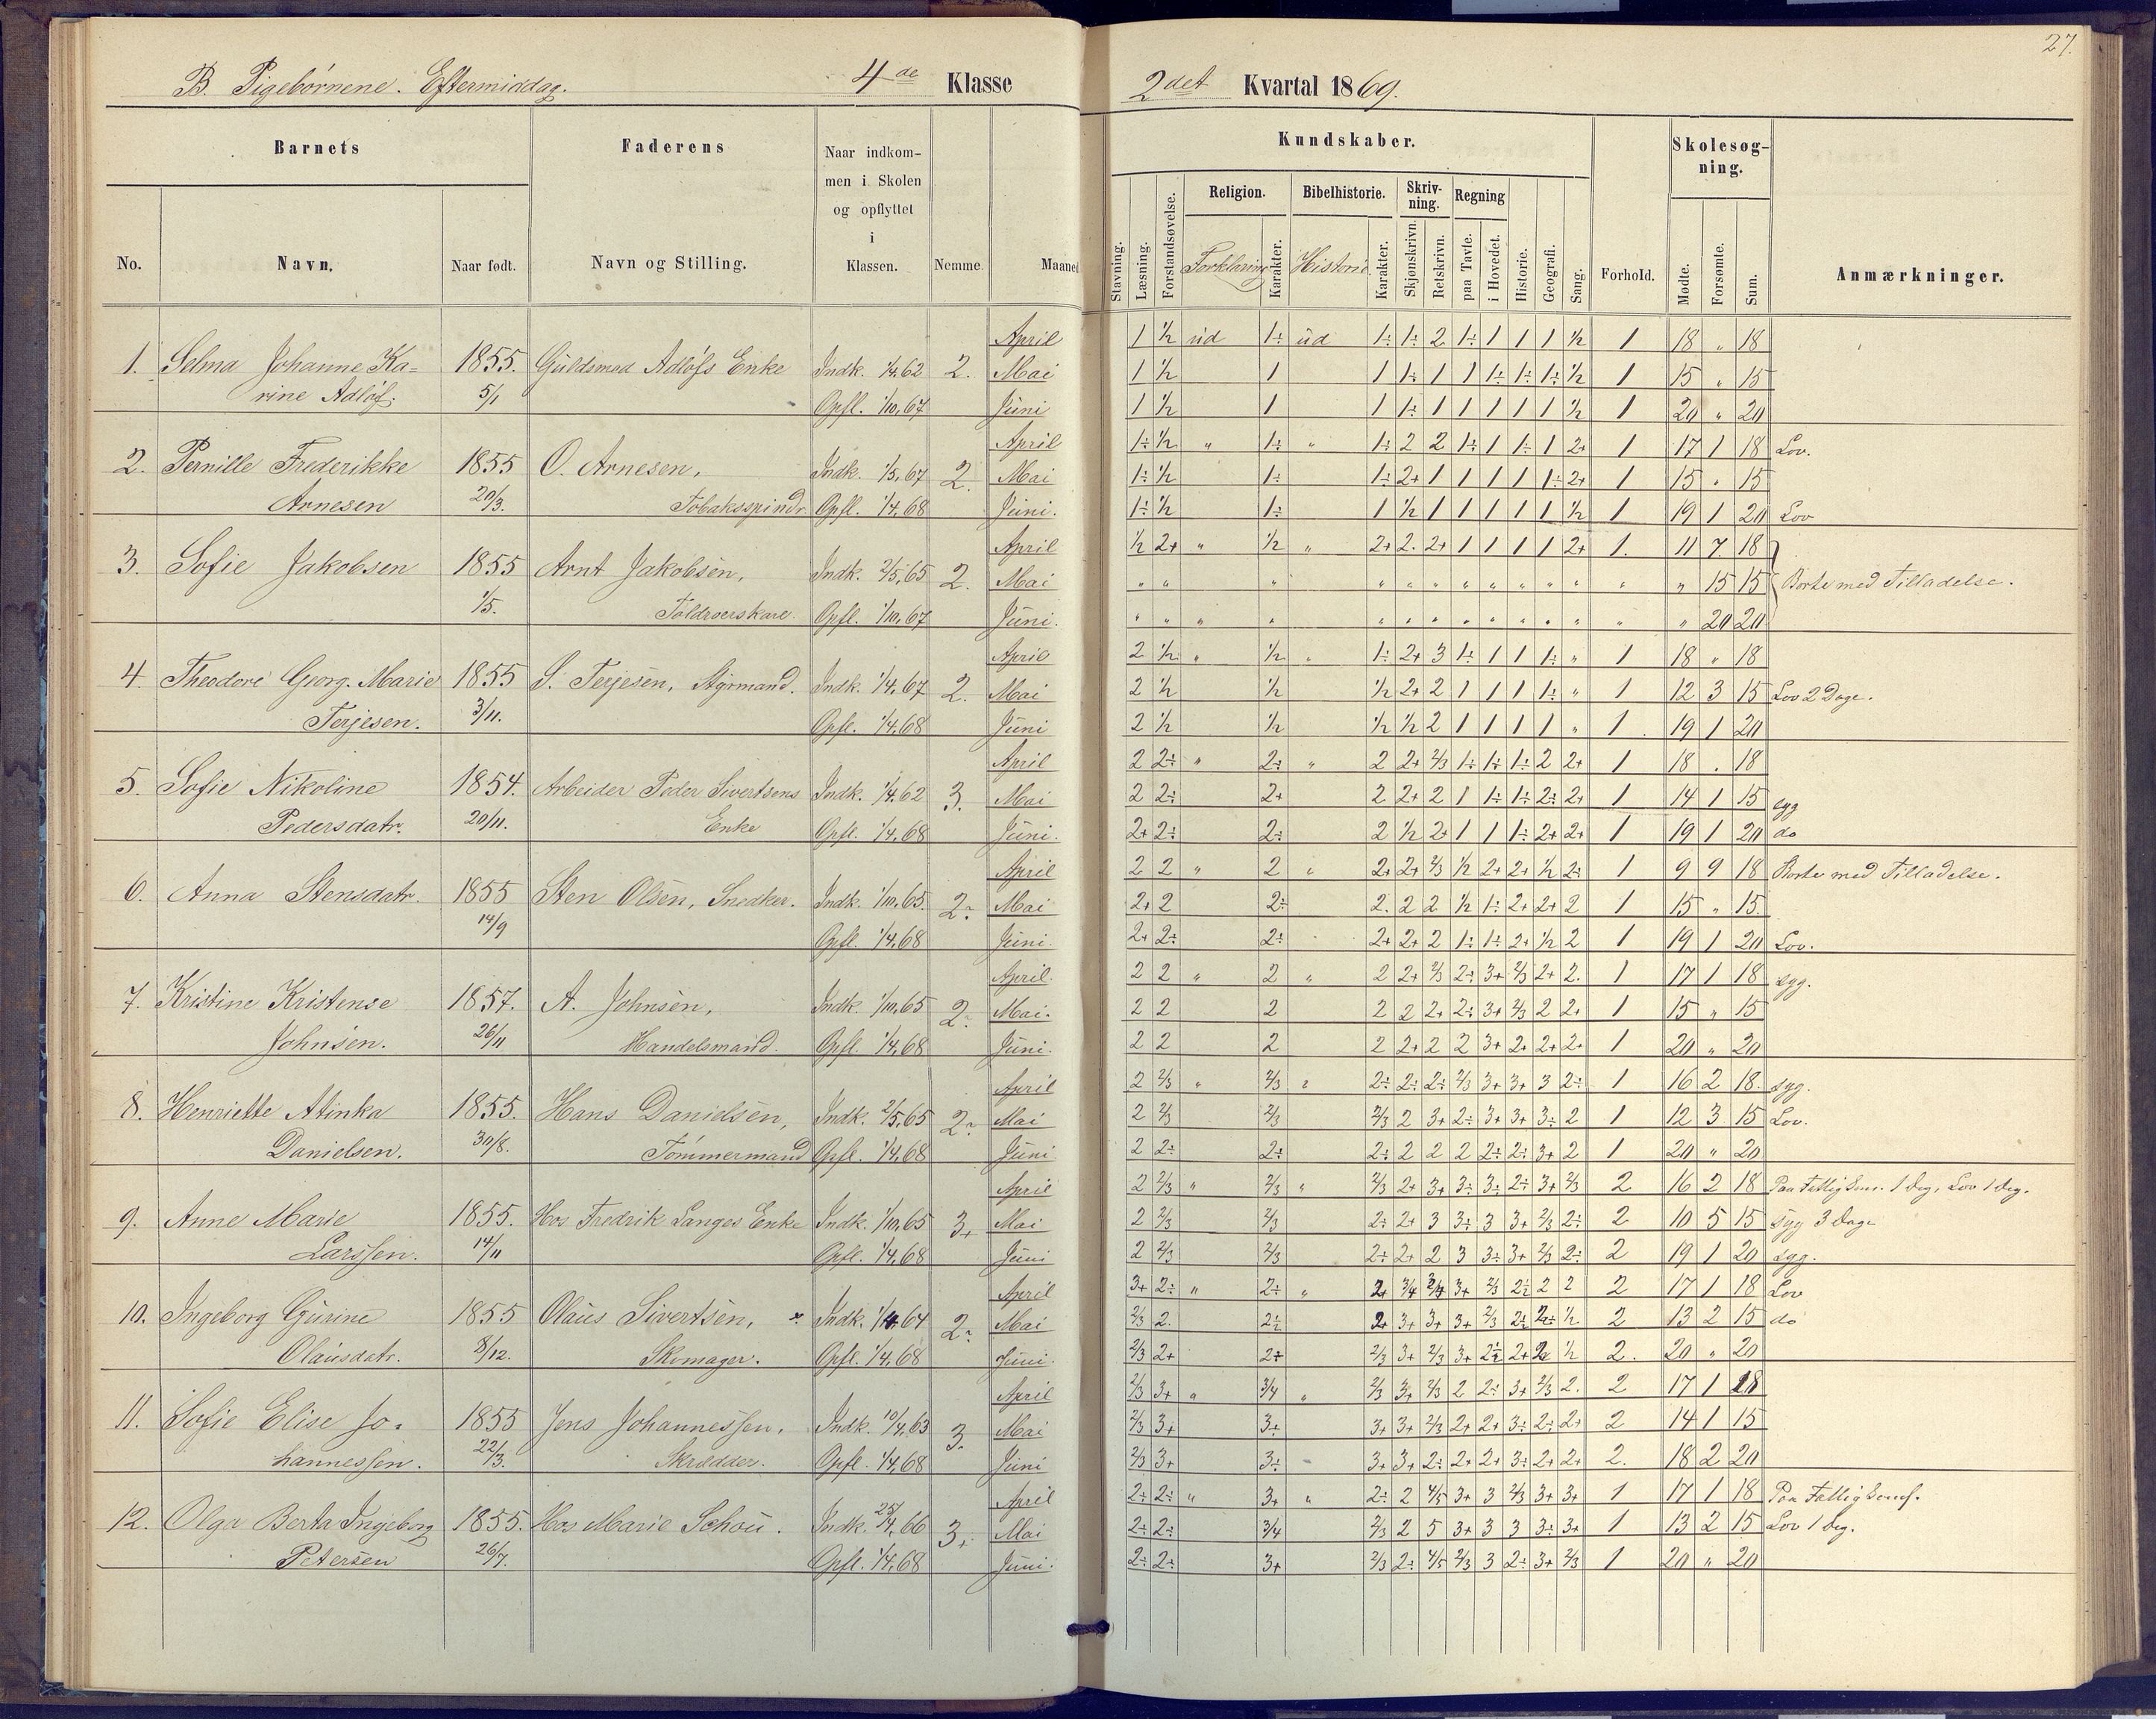 27.
B. Pigebørnene. Eftermiddag. 4de Klasse
2det Kvartal 1869.
Barnets Faderens Naar indkom-
men i Skolen
og opflyttet
i
Klassen.
No. Navn. Naar født. Navn og Stilling. Nemme. Maaned
Kundskaber. Skolesøg-
ning.
Religion. Bibelhistorie. Skriv-
ning. Regning
Stavning. Læsning. Forstandsøvelse. Forklaring Karakter. Historie. Karakter. Skjønskrivn. Retskrivn. paa Tavte. i Hovedet. Historie. Geografi. Sang. Forhold. Mødte. Forsømte. Sum. Anmærkninger.
April 1 1/2 ud 1÷ ud 1÷ 1÷ 2 1÷ 1 1 1 1/2 1 18 " 18
1. Selma Johanne Ka= 1855. Guldsmed Adløfs Enke Indk. 1/4,62 2. Mai 1 1/2 1 1 1÷ 1 1 1÷ 1÷ 1÷ 1/2 1 15 " 15
rine Adløf. 5/1 Opfl. 1/10,67 Juni 1 1/2 1 1 1÷ 1 1 1 1 1 1/2 1 20 " 20
April 1÷ 1/2 " 1÷ " 1÷ 2 2 1÷ 1 1÷ 1 2+ 1 17 1 18 Lov.
2. Pernille Frederikke 1855 O. Arnesen, Indk. 1/5,67 2. Mai 1÷ 1/2 1÷ 1÷ 2+ 1 1 1 1 1÷ 2+ 1 15 " 15
Arnesen 20/3. Tobaksspindr. Opfl. 1/4,68 Juni. 1÷ 1/2 1÷ 1 1/2 1 1 1 1 1 1/2 1 19 1 20 Lov
April 1/2 2+ " 1/2 " 2+ 2. 2+ 1 1 1 1 2+ 1. 11 7 18
3. Sofie Jakobsen 1855 Arnt Jakobsen, Indk. 2/5,65 2. Mai " " " " " " " " " " " " " " 15 15 Borte med Tilladelse.
1/5. Toldroerskarl. Opfl. 1/10,67 Juni. " " " " " " " " " " " " " " " 20 20
April 2 1/2 " 1/2 " 1÷ 2+ 3 1÷ 1 1 1÷ " 1 18 " 18
4. Theodore Georg. Marie 1855 S. Terjesen, Styrmand. Indk. 1/4,67 2. Mai 2 1/2 1/2 1/2 2+ 2 1 1 1 1÷ " 1 12 3 15 Lov 2 Dage.
Terjesen. 3/11. Opfl. 1/4,68 Juni 2 1/2 1/2 1/2 1/2 2 1 1 1 1 " 1 19 1 20
April 2 2÷ " 2÷ " 2 2+ 2/3 1÷ 1÷ 1÷ 2 2+ 1 18 . 18
5. Sofie Nikoline 1854. Arbeider Peder Sivertsens Indk. 1/4,62 3. Mai 2 2÷ 2+ 2 2+ 2 1 1÷ 1÷ 2÷ 2+ 1 14 1 15 syg
Pedersdatr. 20/11. Enke Opfl. 1/4,68 Juni. 2+ 2÷ 2÷ 2 1/2 2+ 1 1 1÷ 2+ 2+ 1 19 1 20 do
April 2 2 " 2 " 2+ 2+ 2/3 1/2 2+ 2+ 1/2 2÷ 1 9 9 18 Borte med Tilladelse.
6. Anna Stensdatr. 1855 Sten Olsen, Snedker. Indk. 1/10,65. 2÷ Mai 2+ 2 2÷ 2. 2 2 1/2 1÷ 2+ 2+ 2 1 15 " 15
14/9 Opfl. 1/4,68 Juni. 2+ 2÷ 2÷ 2+ 2+ 2 1÷ 1÷ 2+ 1/2 2 1 19 1 20 Lov.
April. 2 2 " 2 " 2 2+ 2/3 2÷ 3+ 2/3 2+ 2. 1 17 1 18 syg.
7. Kristine Kristense 1857. A. Johnsen, Indk. 1/10,65 2÷ Mai. 2 2 2 2 2 2+ 2÷ 3+ 2/3 2 2+ 1 15 " 15
Johnsen. 26/11 Handelsmand. Opfl. 1/4,68 Juni. 2 2 2 2 2+ 2 2 3+ 2+ 2+ 2+ 1 20 " 20
April 2 2/3 " 2/3 " 2÷ 2÷ 2÷ 2/3 3+ 3+ 3 2÷ 1 16 2 18 syg.
8. Henriette Atinka 1855. Hans Danielsen, Indk. 2/5,65 2÷ Mai 2 2/3 2/3 2/3 2 3+ 2÷ 3+ 3+ 3÷ 2 1 12 3 15 Lov.
Danielsen. 30/8. Tømmermand Opfl. 1/4,68 Juni 2 2÷ 2÷ 2÷ 2 2 2 2÷ 2÷ 3+ 2 1 20 " 20
April 2 2/3 " 2/3 " 2/3 2+ 3+ 3÷ 3÷ 2÷ 3+ 2/3 2 16 2 18 Paa Fattighuset 1 Dag, Lov 1 Dag.
9. Anne Marie 1855. Hos Fredrik Langes Enke Indk. 1/10,65 3+ Mai 2 2/3 2/3 2÷ 2+ 3 3÷ 3 3+ 2/3 2÷ 2 10 5 15 syg 3 Dage
Larssen. 14/11 Opfl. 1/4,68 Juni 2 2/3 2/3 2÷ 2+ 2 3 3÷ 3+ 2/3 2÷ 2 19 1 20 syg.
April 3+ 2÷ " 2÷ " 2+ 3/4 3/4 3+ 2/3 2÷ 2 2 2 17 1 18 Lov
10. Ingeborg Gurine 1855 Olaus Sivertsen, Indk. 1/4,64 2÷ Mai 2/3 2. 2÷ 2+ 3+ 3+ 3+ 2/3 2÷ 2÷ 1/2 2 13 2 15 do
Olausdatr. 8/12. Skomager. Opfl. 1/4,68 Juni. 2/3 2+ 2+ 2/3 3+ 2/3 3+ 2÷ 2+ 2 1/2 2. 20 " 20
April 2/3 3+ " 3/4 " 2/3 3+ 2/3 2 2÷ 3+ 2/3 2. 2 17 1 18
11. Sofie Elise Jo= 1855 Jens Johannessen, Indk. 10/4,63 3. Mai 2/3 3+ 3+ 3+ 3+ 2/3 2+ 2+ 3÷ 2÷ 2+ 2 14 1 15
hannessen. 22/3. Skrædder. Opfl. 1/4,68 Juni 2/3 3+ 3÷ 3+ 3+ 2÷ 2+ 2+ 3÷ 2+ 2+ 2. 18 2 20
April 2÷ 2÷ " 3+ " 2÷ 2 4/5 3+ 3 2/3 3+ 3+ 1 17 1 18 Paa Fattighuset.
12. Olga Berta Ingeborg 1855. Hos Marie Schou. Indk. 25/4,66 3+ Mai 2÷ 2÷ 3/4 2/3 2 5 3+ 3 3 3÷ 3+ 1 13 2 15 Lov 1 Dag.
Petersen 26/7. Opfl. 1/4,68 Juni. 2÷ 2÷ 3+ 2/3 2÷ 4/5 2/3 3 2÷ 3+ 2/3 1 20 " 20